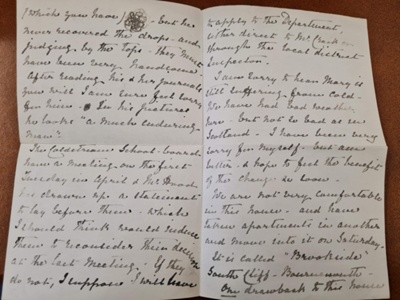 (which you have) - but he
never recovered the drops - and
judging by the tops - they must
have been very handsome -
After reading his & her journals
you will I am sure feel sorry
for him - In his pictures
he looks "a much enduring
man".
The Coldstream School-board
have a meeting, on the first
Tuesday in April & Mr Hood
has drawn up a statement
to lay before them - which
I should think would induce
them to reconsider their decision
at the last meeting - If they
do not, I suppose I will have
to apply to the Department,
either direct to Mr or
through the local district
Inspector -
I am sorry to hear Mary is
still suffering from cold -
We have had bad weather
here - but not so bad as in
Scotland - I have been very
sorry for myself - but am
better - & hope to feel the benefit
of the change soon -
We are not very comfortable
in this house - and have
taken apartments in another
and move into it on Saturday -
It is called - "Brookside"
South Cliff - Bournemouth -
One drawback to this house